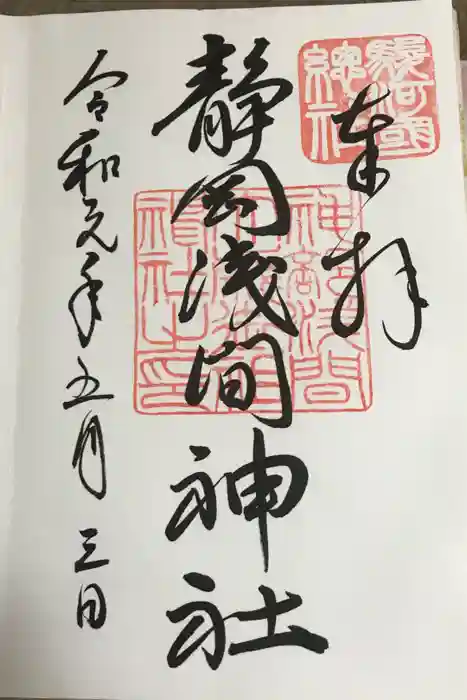 奉拝
駿河國
總社
静岡浅間神社
令和元年五月三日